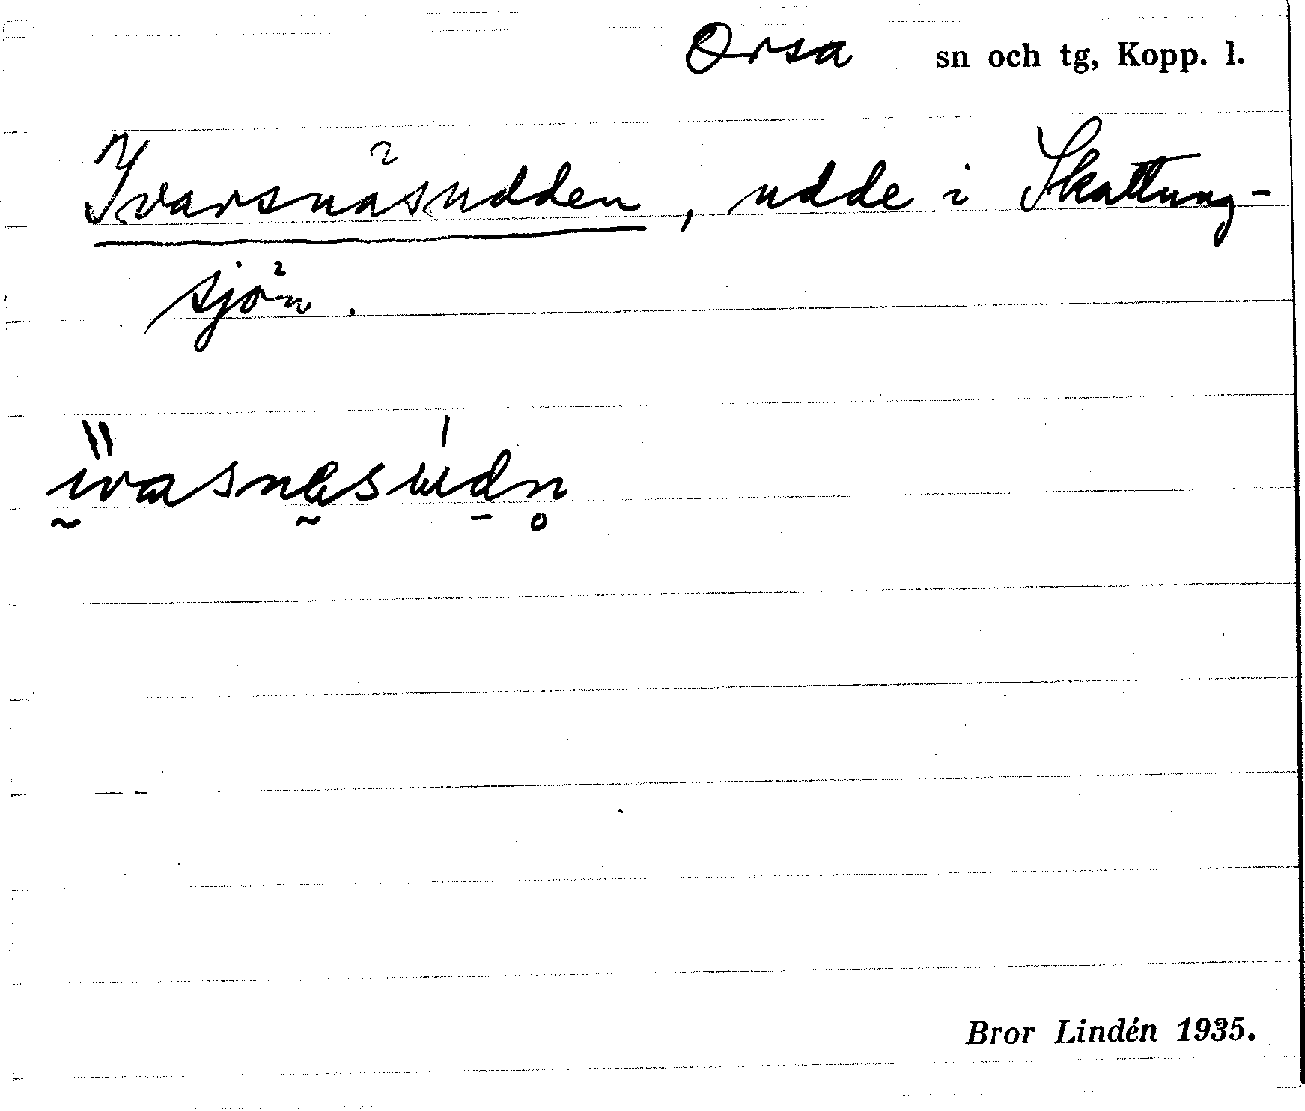 Orsa sn och tg, Kopp. l.
Ivarsnäsudden, udde i Skattung-
sjön.
Bror Lindén 1935.